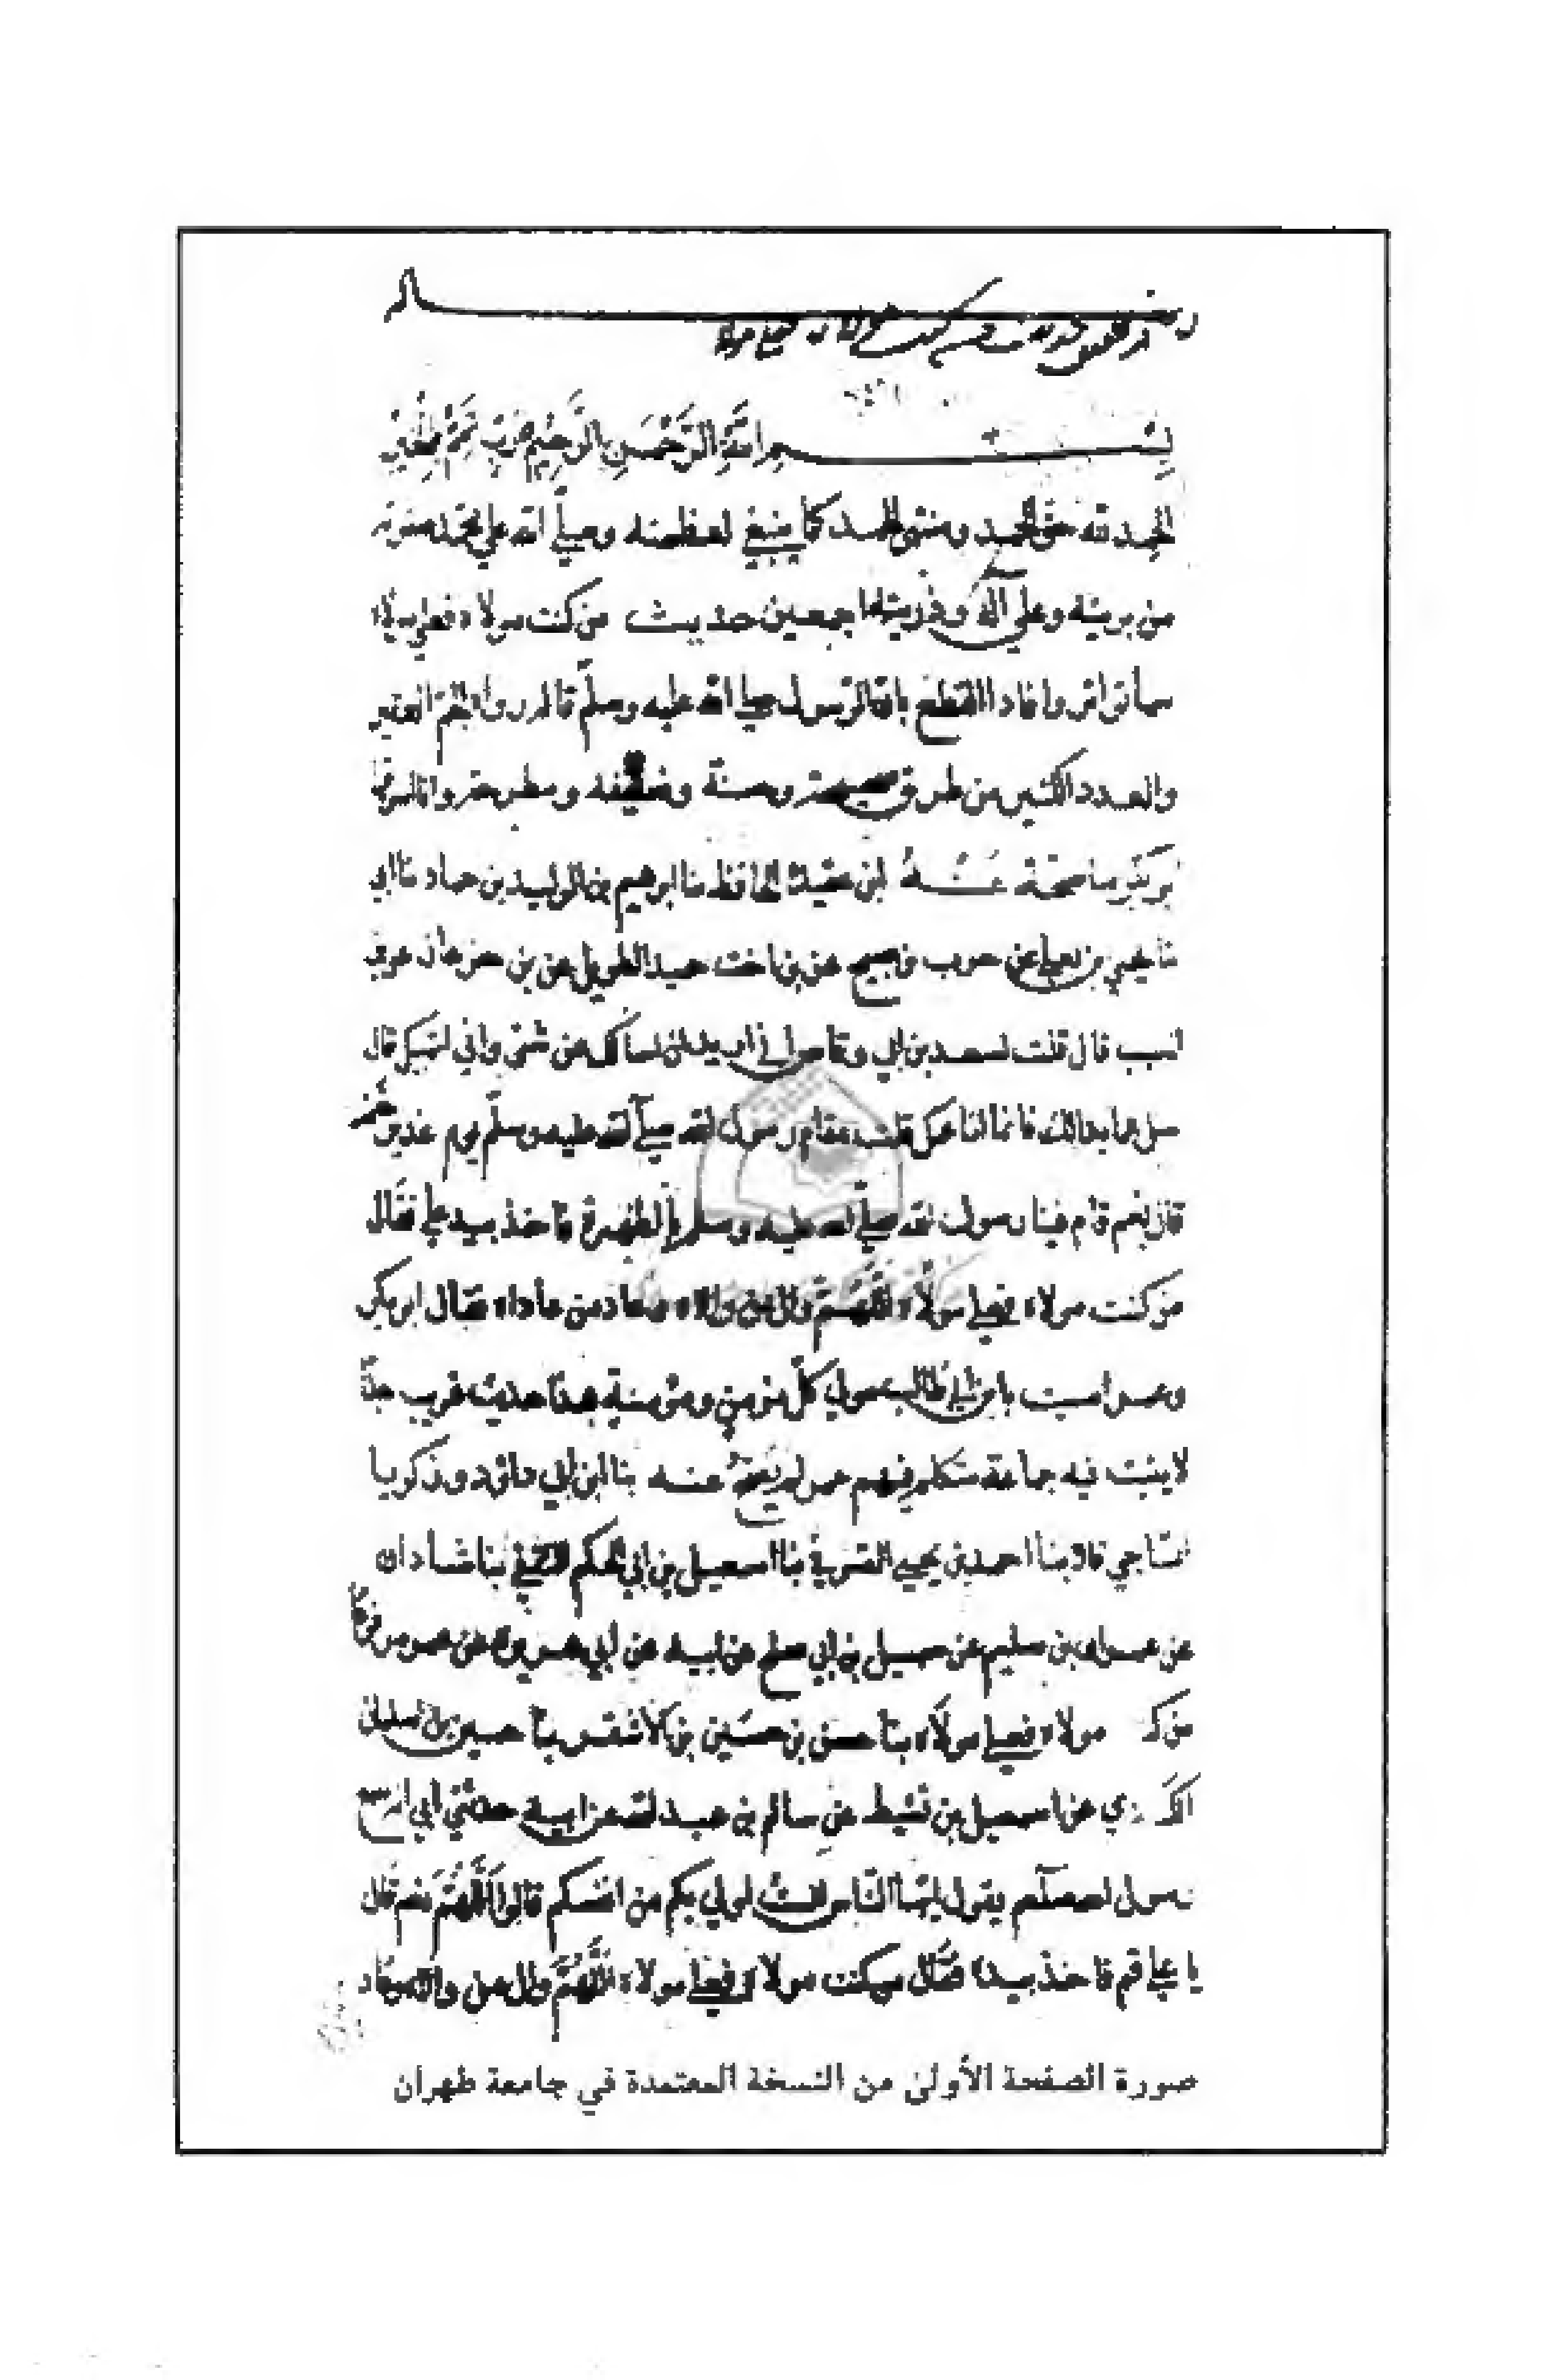 رسالة
بسم الله الرحمن الرحيم
الحمد لله حق الحمد ومنتهى الحمد كما ينبغي لعظمته وصلى الله على محمد صفوته
من بريته وعلى آله وذريته اجمعين حديث من كنت مولاه فعلي مولاه
مما تواتر وافاد القطع بان الرسول صلى الله عليه وسلم قاله رواه الجم الغفير
والعدد الكثير من طرق صحيحة وحسنة وضعيفة ومطرحة وانا اسوقها
ابن عقدة الحافظ نا ابرهيم بن الوليد بن حماد نا ابي
نا يحيى بن يعلى عن حرب بن صبيح عن بن اخت حميد الطويل عن بن جدعان عن
قال قلت لسعد بن ابي وقاص اني اريد ان اسألك عن شيء واني اتقيك قال
سل عما بدا لك فانما انا عمك قلت مقام رسول الله صلى الله عليه وسلم يوم غدير خم
قال نعم قام فينا رسول الله صلى الله عليه وسلم بالظهيرة فاخذ بيد علي فقال
من كنت مولاه فعلي مولاه اللهم وال من والاه وعاد من عاداه فقال ابو بكر
وعمر امسيت يابن ابي طالب مولى كل مؤمن ومؤمنة هذا حديث غريب جدا
فيه جماعة متكلم فيهم عنه بنا ابن ابي داود وزكريا
الساجي قالا بنا احمد بن يحيى الصوفي بنا اسمعيل بن ابي الحكم الثقفي بنا شاذان
عن عمران بن مسلم عن سهيل بن ابي صالح عن ابيه عن ابي هريرة عن عمر مرفوعا
من كـ مولاه فعلي مولاه بنا حسن بن حسين بن الاشقر بنا حسين بن
عن اسمعيل بن نشيط عن سالم بن عبد الله عن ابيه حدثني ابي انه سمع
رسول يقول ايها الناس الست اولى بكم من انفسكم قالوا اللهم نعم قال
يا علي قم فاخذ بيده فقال من كنت مولاه فعلي مولاه اللهم وال من والاه وعاد
صورة الصفحة الأولى من النسخة المعتمدة في جامعة طهران